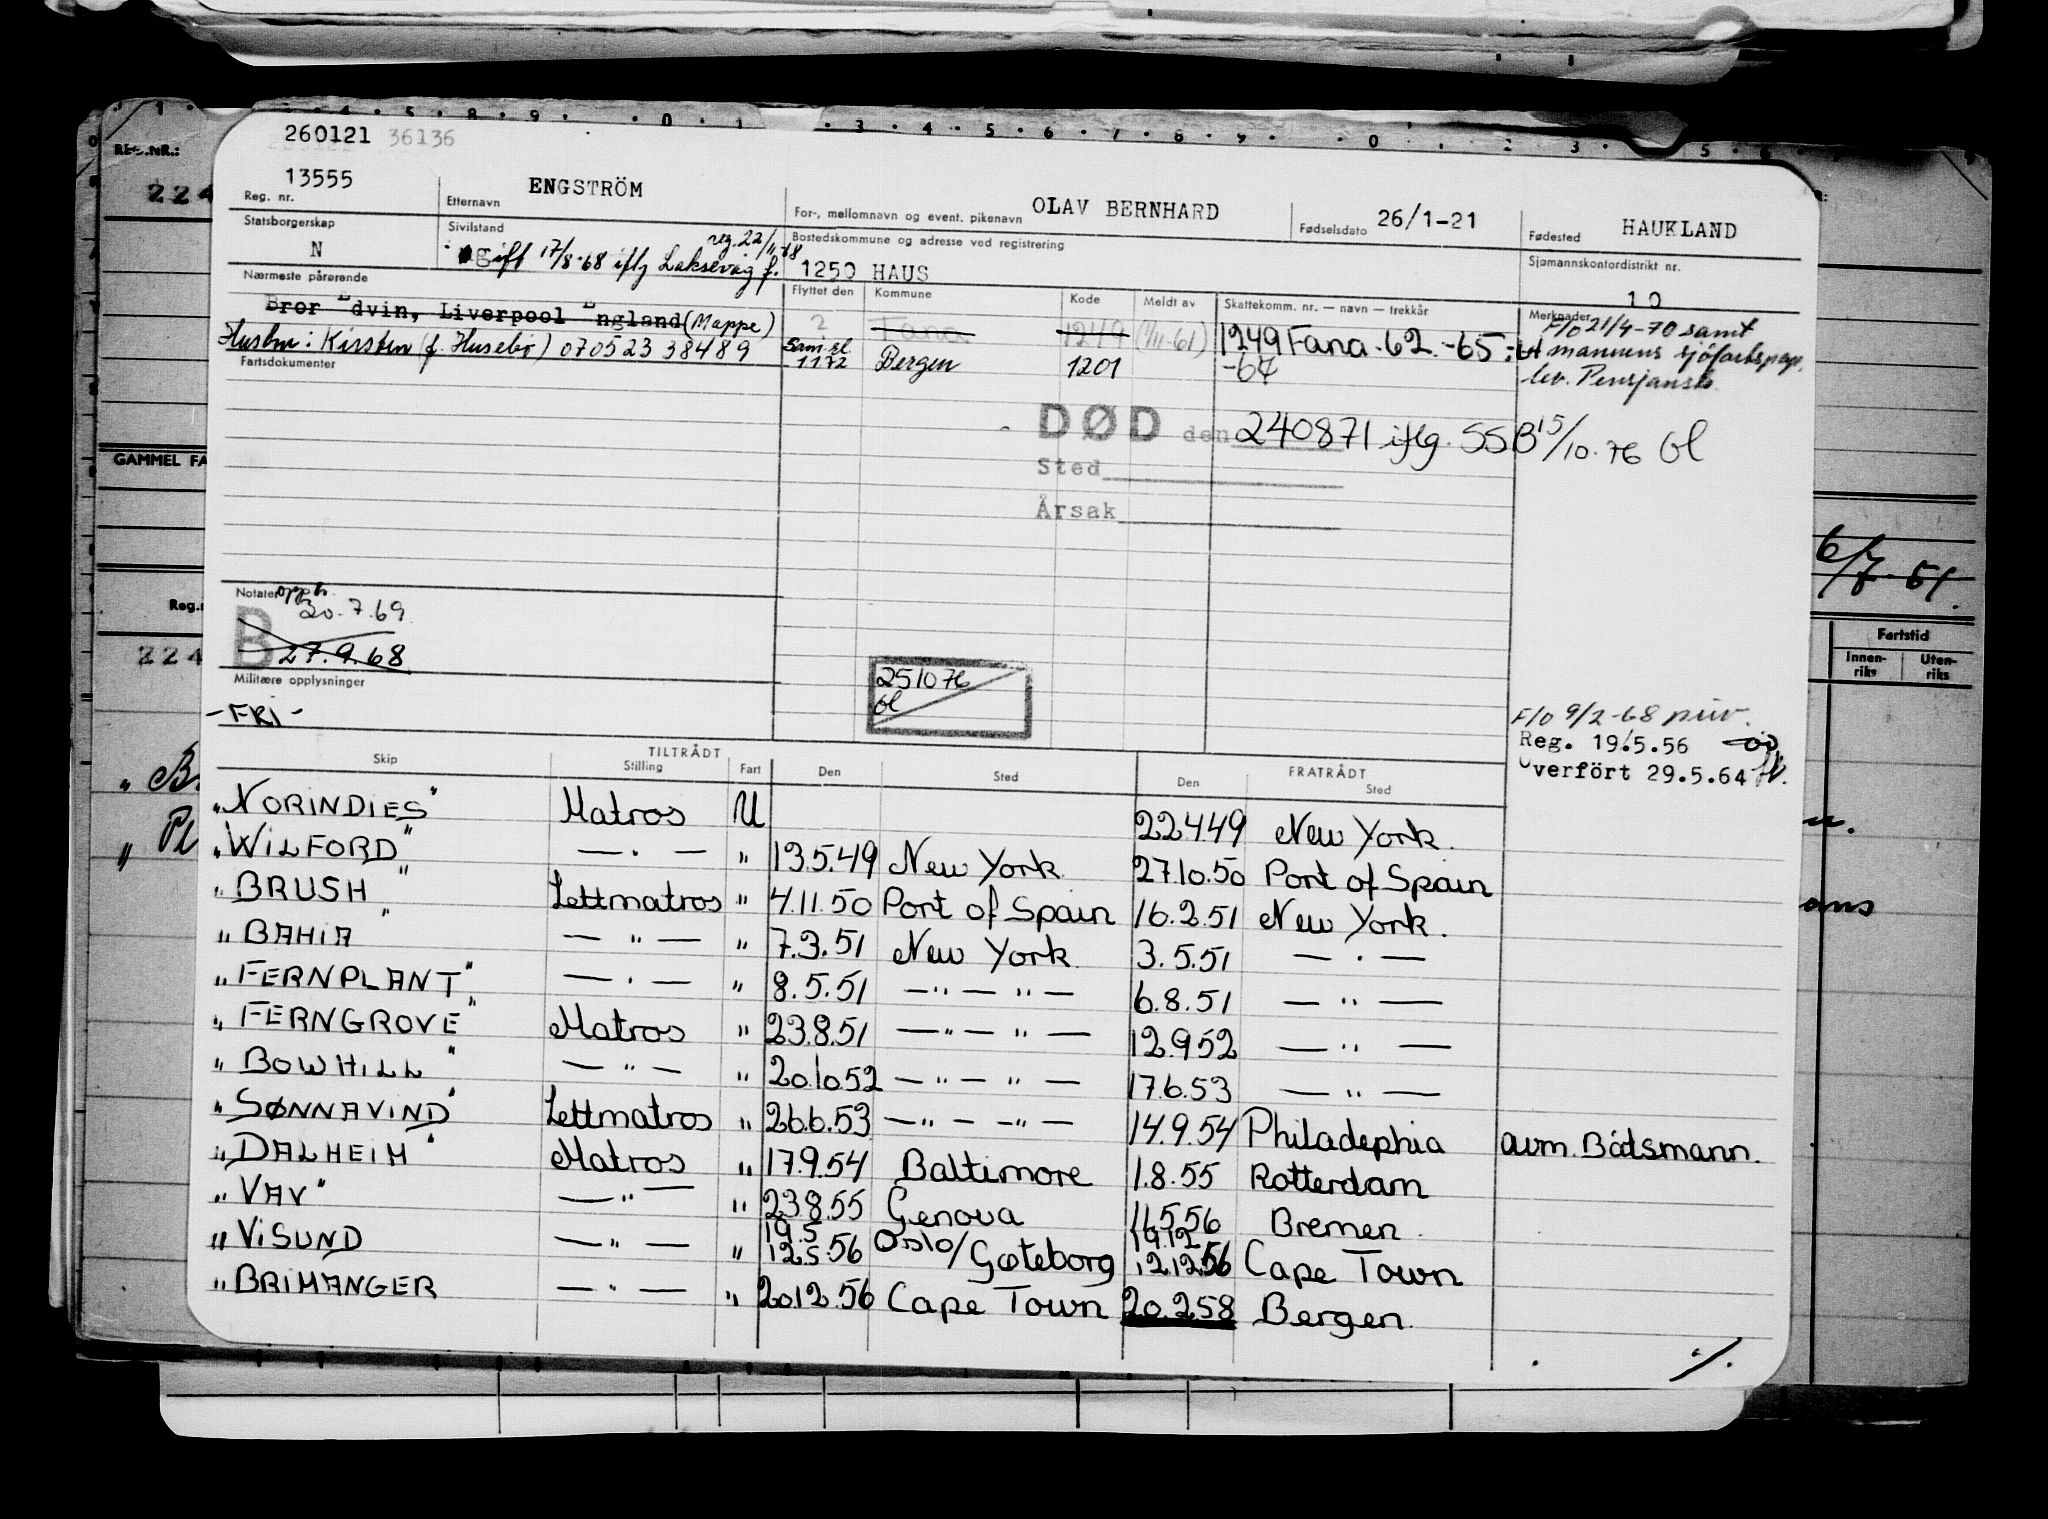 260121 36136
13555
Reg. nr.
ENGSTRÖM
Etternavn
OLAV BERNHARD
For-, mellomnavn og event. pikenavn
26/1-21
Fødselsdato
HAUKLAND
Fødested
Statsborgerskap
N
Sivilstand
reg. 22/11-68
gift 17/8-68 iflg Laksevåg f.
Bostedskommune og adresse ved registrering
1250 HAUS
Sjømannskontordistrikt nr.
10
Nærmeste pårørende
Bror Edvin, Liverpool England (Mappe)
Hustru: Kirsten (f. Husebø) 070523 38489
Flyttet den
Kommune
Kode
Meldt av
Skattekomm. nr. — navn — trekkår
Merknader
2
Fana
1249
(1/11-61)
1249 Fana -62 -65
-64
Saml.
1172
Bergen
1201
F/o 21/4-70 samt
mannens sjøfartspap.
lev. Pensjons
Fartsdokumenter
DØD den 240871 iflg. SSB 15/10.76 Gl
Sted
Årsak
Notater
opph.
30.7.69
B
27.9.68
Militære opplysninger
-FRI-
251076
Gl
F/o 9/2-68 priv.
Reg. 19.5.56
Overfört 29.5.64
TILTRÅDT
FRATRÅDT
Skip
Stilling
Fart
Den
Sted
Den
Sted
"NORINDIES" Matros U 22.4.49 New York.
"WILFORD" — . — " 13.5.49 New York 27.10.50 Port of Spain
"BRUSH" Lettmatros " 4.11.50 Port of Spain 16.2.51 New York.
"BAHIA" — " — " 7.3.51 New York 3.5.51 — . —
"FERNPLANT" — . — " 8.5.51 — " — " — 6.8.51 — " —
"FERNGROVE" Matros " 23.8.51 — " — " — 12.9.52 — " —
"BOWHILL" — " — " 20.10.52 — " — " — 17.6.53 — " —
"SØNNAVIND" Lettmatros " 26.6.53 — " — " — 14.9.54 Philadephia avm. Båtsmann.
"DALHEIM" Matros " 17.9.54 Baltimore 1.8.55 Rotterdam
"VAV" — " — " 23.8.55 Genova 11.5.56 Bremen
19.5
19.12
"VISUND — " — " 12.5.56 Oslo/Gøteborg 12.12.56 Cape Town
"BRIMANGER — " — " 20.12.56 Cape Town 20.2.58 Bergen.
./.
REG.NR.:
224
GAMMEL FA
Reg.
224
"B.
" Pl
6/7-51.
Fartstid
Innen-
riks
Uten-
riks
ans